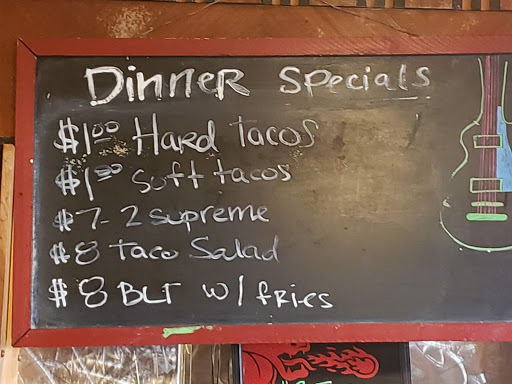 Dinner Specials
$1.00 Hard tacos
$1.00 Soft tacos
$7- 2 supreme
$8 taco Salad
$8 BLT w/ fries